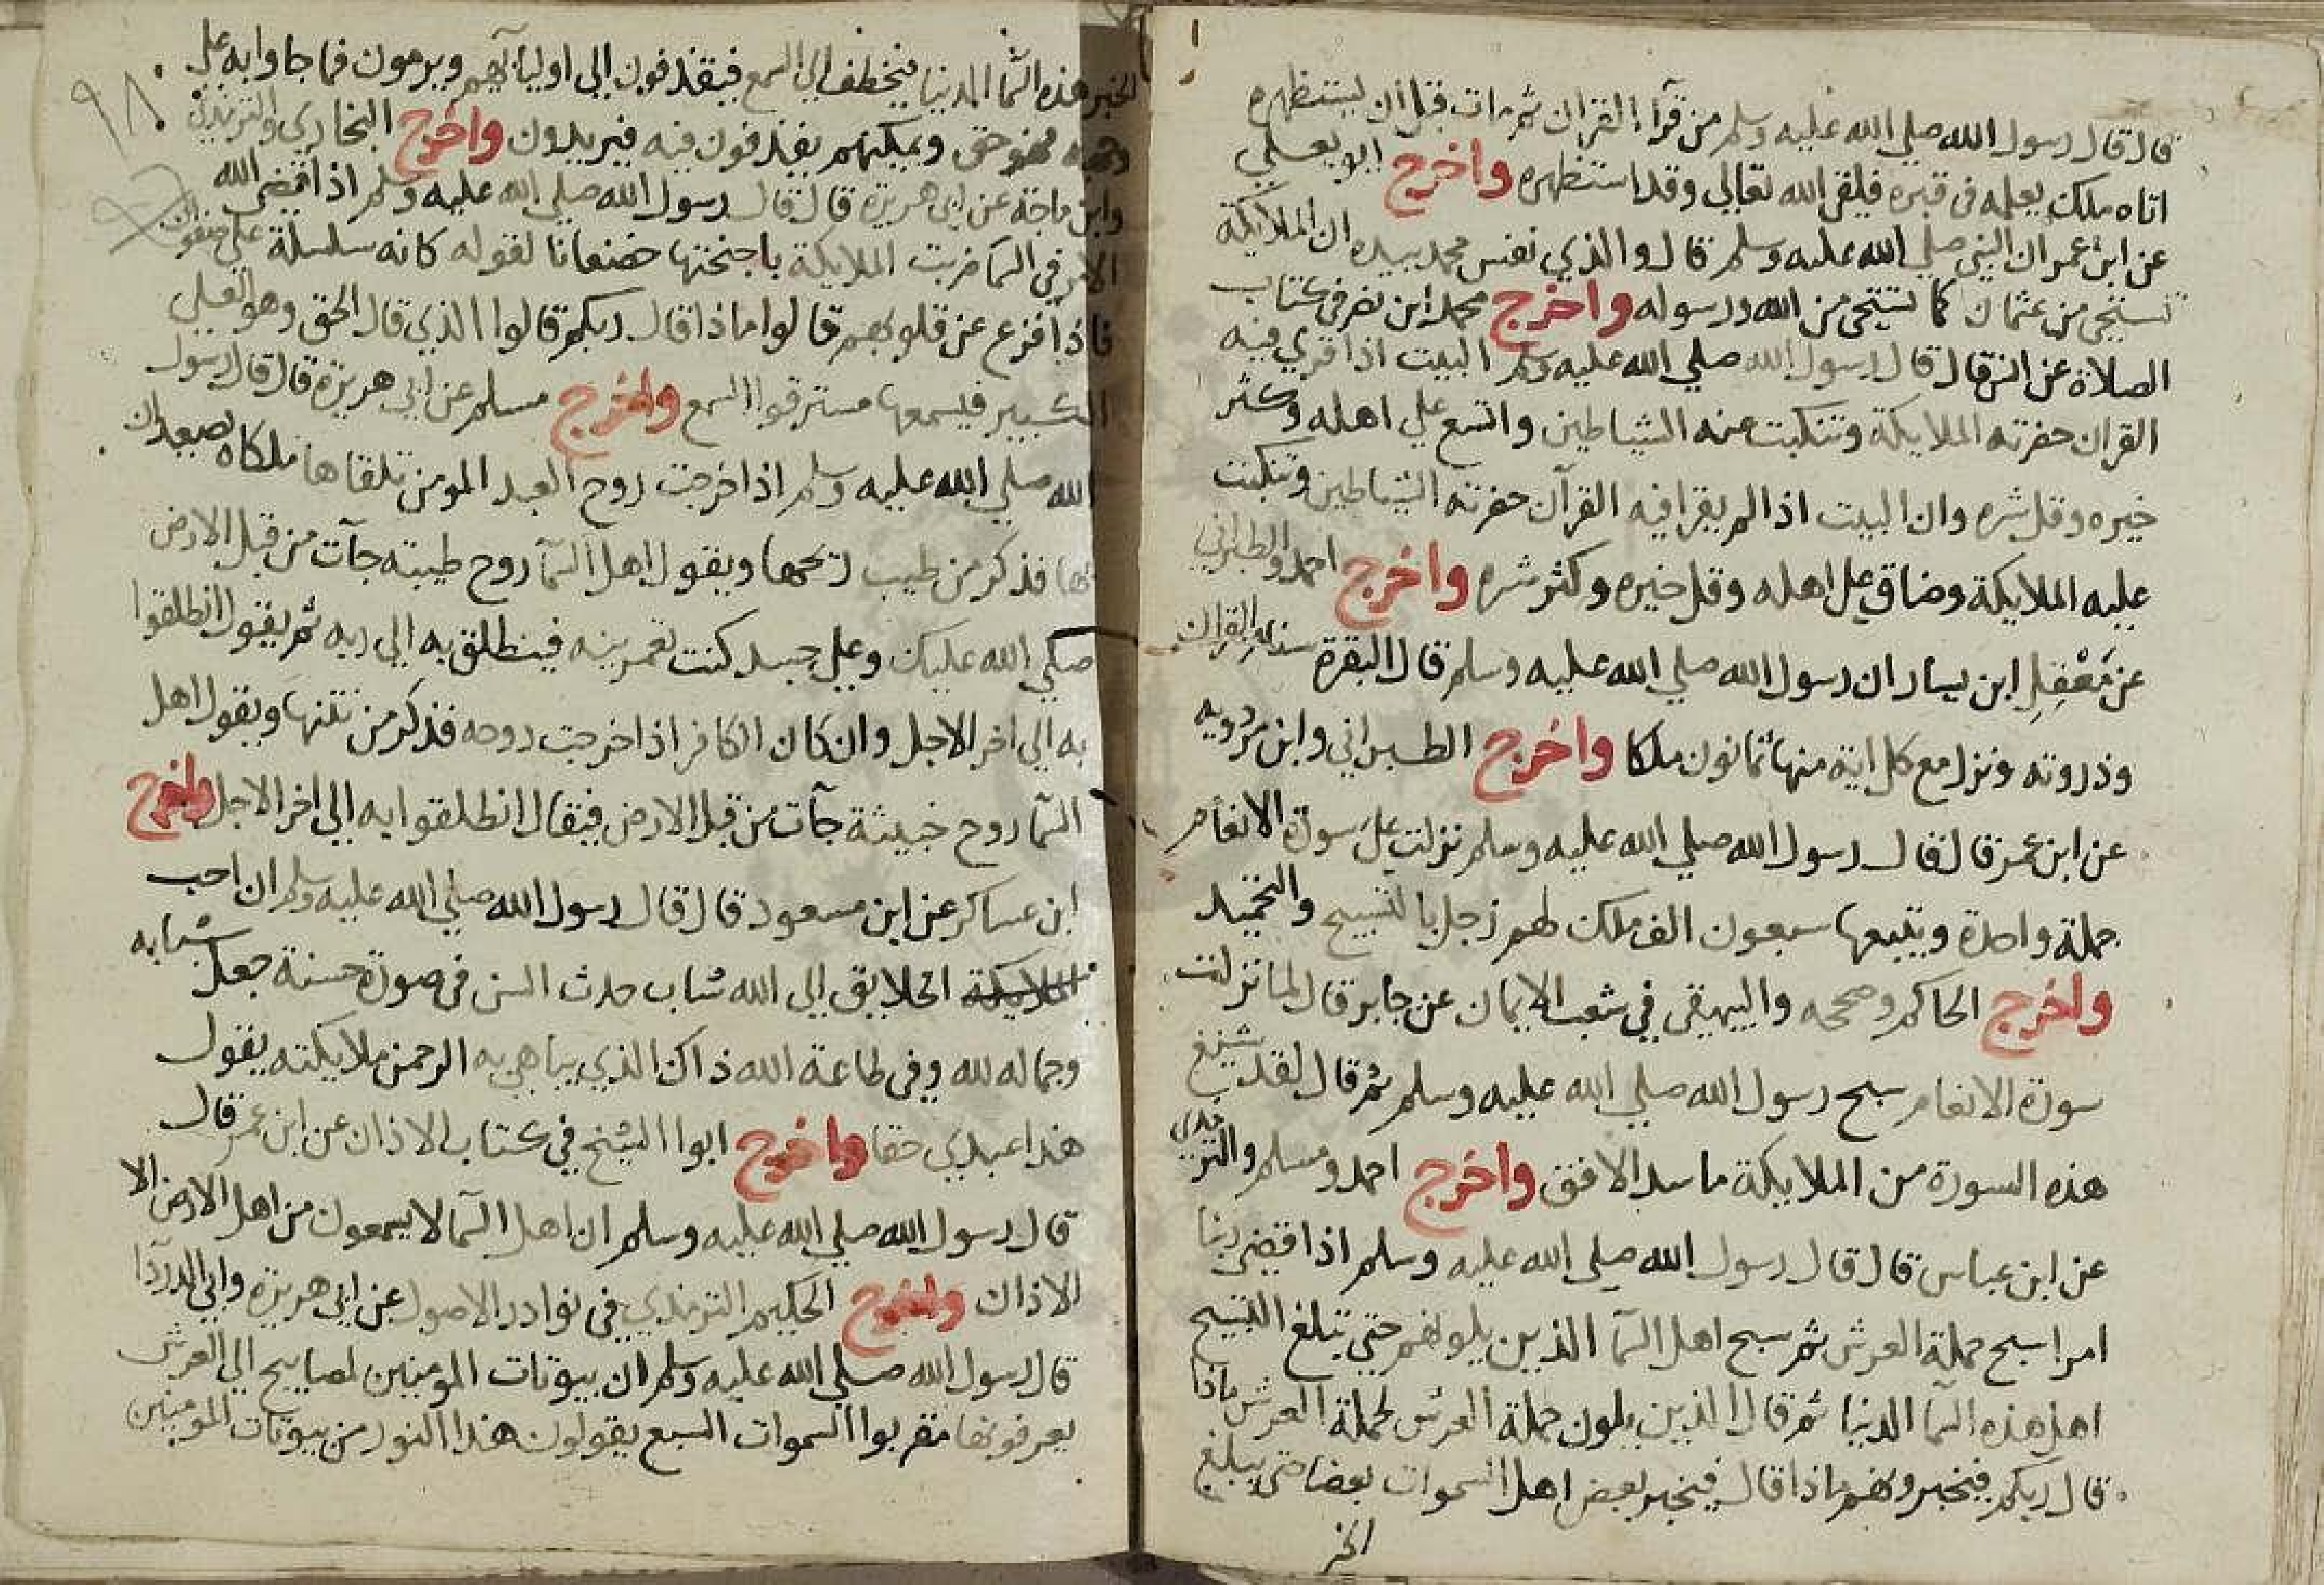 قال قال رسول الله صلي الله عليه وسلم من قرآء القران ثم مات قبل ان يستظهره
اتاه ملك يعلمه في قبره فيلقي الله تعالي وقد استظهره واخرج ابو يعلي
عن ابن عمر ان النبي صلي الله عليه وسلم قال والذي نفس محمد بيده ان الملايكة
تستحي من عثمان كما تستحي من الله ورسوله واخرج محمد ابن نصر في كتاب
الصلاة عن انس قال قال رسول الله صلي الله عليه وسلم البيت اذا قري فيه
القران حضرته الملايكة وتنكبت عنه الشياطين واتسع علي اهله وكثر
خيره وقل شره وان البيت اذا لم يقرا فيه القرآن حضرته الشياطين وتنكبت
عليه الملايكة وضاق علي اهله وقل خيره وكثر شره واخرج احمد والطبراني
عن معقل ابن يسار ان رسول الله صلي الله عليه وسلم قال البقرة سنام القران
وذروته ونزل مع كل اية منها ثمانون ملكا واخرج الطبراني وابن مردويه
عن ابن عمر قال قال رسول الله صلي الله عليه وسلم نزلت علي سورة الانعام
جملة واحدة ويتبعها سبعون الف ملك لهم زجل بالتسبيح والتحميد
واخرج الحاكم وصححه والبيهقي في شعب الايمان عن جابر قال لما نزلت
سورة الانعام سبح رسول الله صلي الله عليه وسلم ثم قال لقد شيع
هذه السورة من الملايكة ما سد الافق واخرج احمد ومسلم والترمذي
عن ابن عباس قال قال رسول الله صلي الله عليه وسلم اذا قضي ربنا
امرا سبح حملة العرش ثم سبح اهل السما الذين يلونهم حتي تبلغ التسبيح
اهل هذه السما الدنيا ثم قال الذين يلون حملة العرش لحملة العرش ماذا
قال ربكم فيخبرونهم ماذا قال فيخبر بعض اهل السموات بعضا حتي يبلغ
الخبر
الخبر هذه السما الدنيا فيخطف الي السمع فيقذفون الي اوليآيهم ويرمون فما جاوا به علي
وجهه فهو حق ولكنهم يقذفون فيه فيزيدون واخرج البخاري والترمذي
وابن ماجة عن ابي هريرة قال قال رسول الله صلي الله عليه وسلم اذا قضي الله
الامر في السما ضربت الملايكة باجنحتها خضعانا لقوله كانه سلسلة علي صفوان
فاذا فزع عن قلوبهم قالوا ماذا قال ربكم قالوا الذي قال الحق وهو العلي
الكبير فيسمعها مسترقوا السمع واخرج مسلم عن ابي هريرة قال قال رسول
الله صلي الله عليه وسلم اذا خرجت روح العبد المومن تلقاها ملكاه يصعدان
بها فذكر من طيب ريحها ويقول اهل السمآ روح طيبته جآت من قبل الارض
صلي الله عليك وعلي جسد كنت تعمرينه فينطلق به الي ربه ثم يقول انطلقوا
به الي اخر الاجل وان كان الكافر اذا خرجت روحه فذكر من نتنها ويقول اهل
السما روح خبيثة جآت من قبل الارض فيقال انطلقوا به الي اخر الاجل واخرج
ابن عساكر عن ابن مسعود قال قال رسول الله صلي الله عليه وسلم ان احب
الملايكة الخلايق الي الله شاب حدث السن في صورة حسنة جعل شبابه
وجماله لله وفي طاعة الله ذاك الذي يباهي به الرحمن ملايكته يقول
هذا عبدي حقا واخرج ابوا الشيخ في كتاب الاذان عن ابن عمر قال
قال رسول الله صلي الله عليه وسلم ان اهل السما لا يسمعون من اهل الارض الا
الاذان واخرج الحكيم الترمذي في نوادر الاصول عن ابي هريرة وابي الدردآ
قال رسول الله صلي الله عليه وسلم ان بيوتات المومنين لمصابيح الي العرش
يعرفونها مقربوا السموات السبع يقولون هذا النور من بيوتات المومنين
٩٨